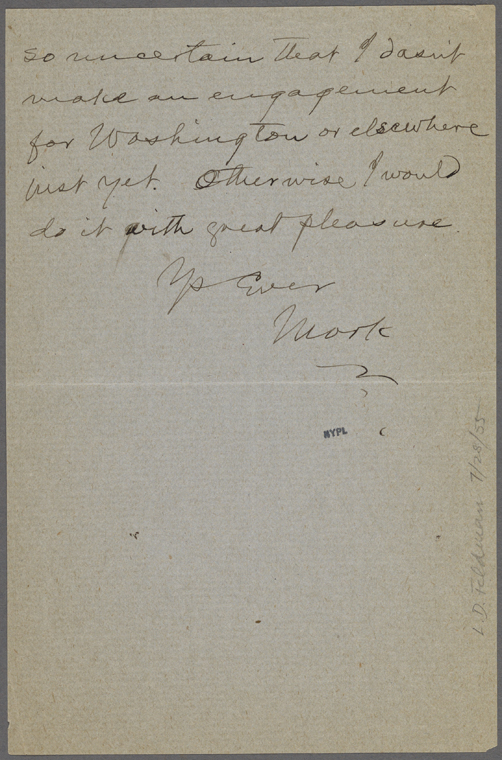 so uncertain that I dasn't
make an engagement
for Washington or elsewhere
just yet. Otherwise I would
do it with great pleasure.
Yrs Ever
Mark
NYPL
L.D. Feldman 7/28/55